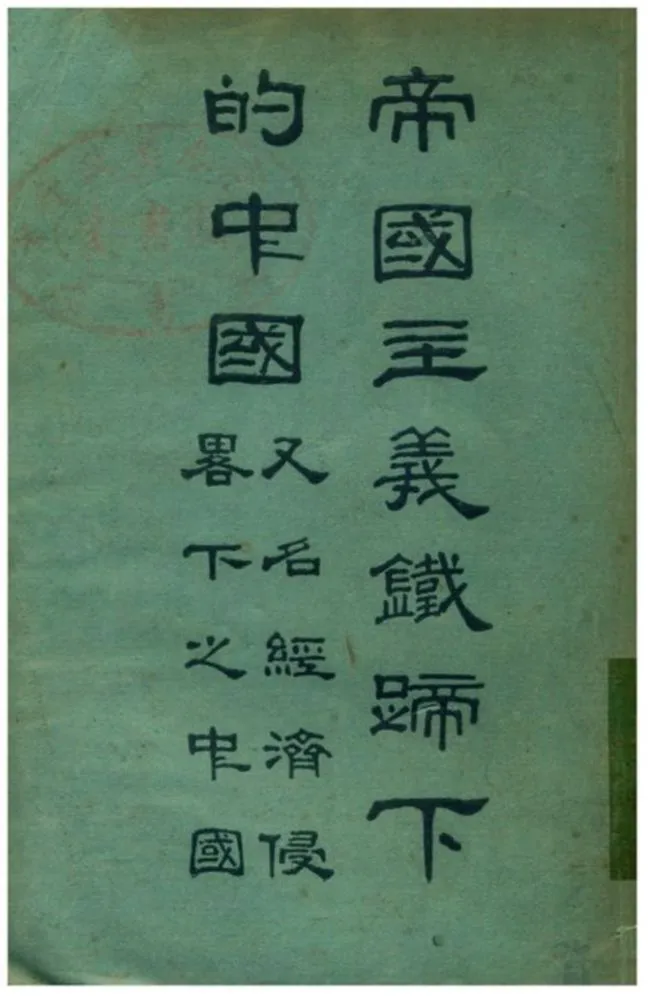 帝國主義鐵蹄下
的中國
又名經濟侵
畧下之中國